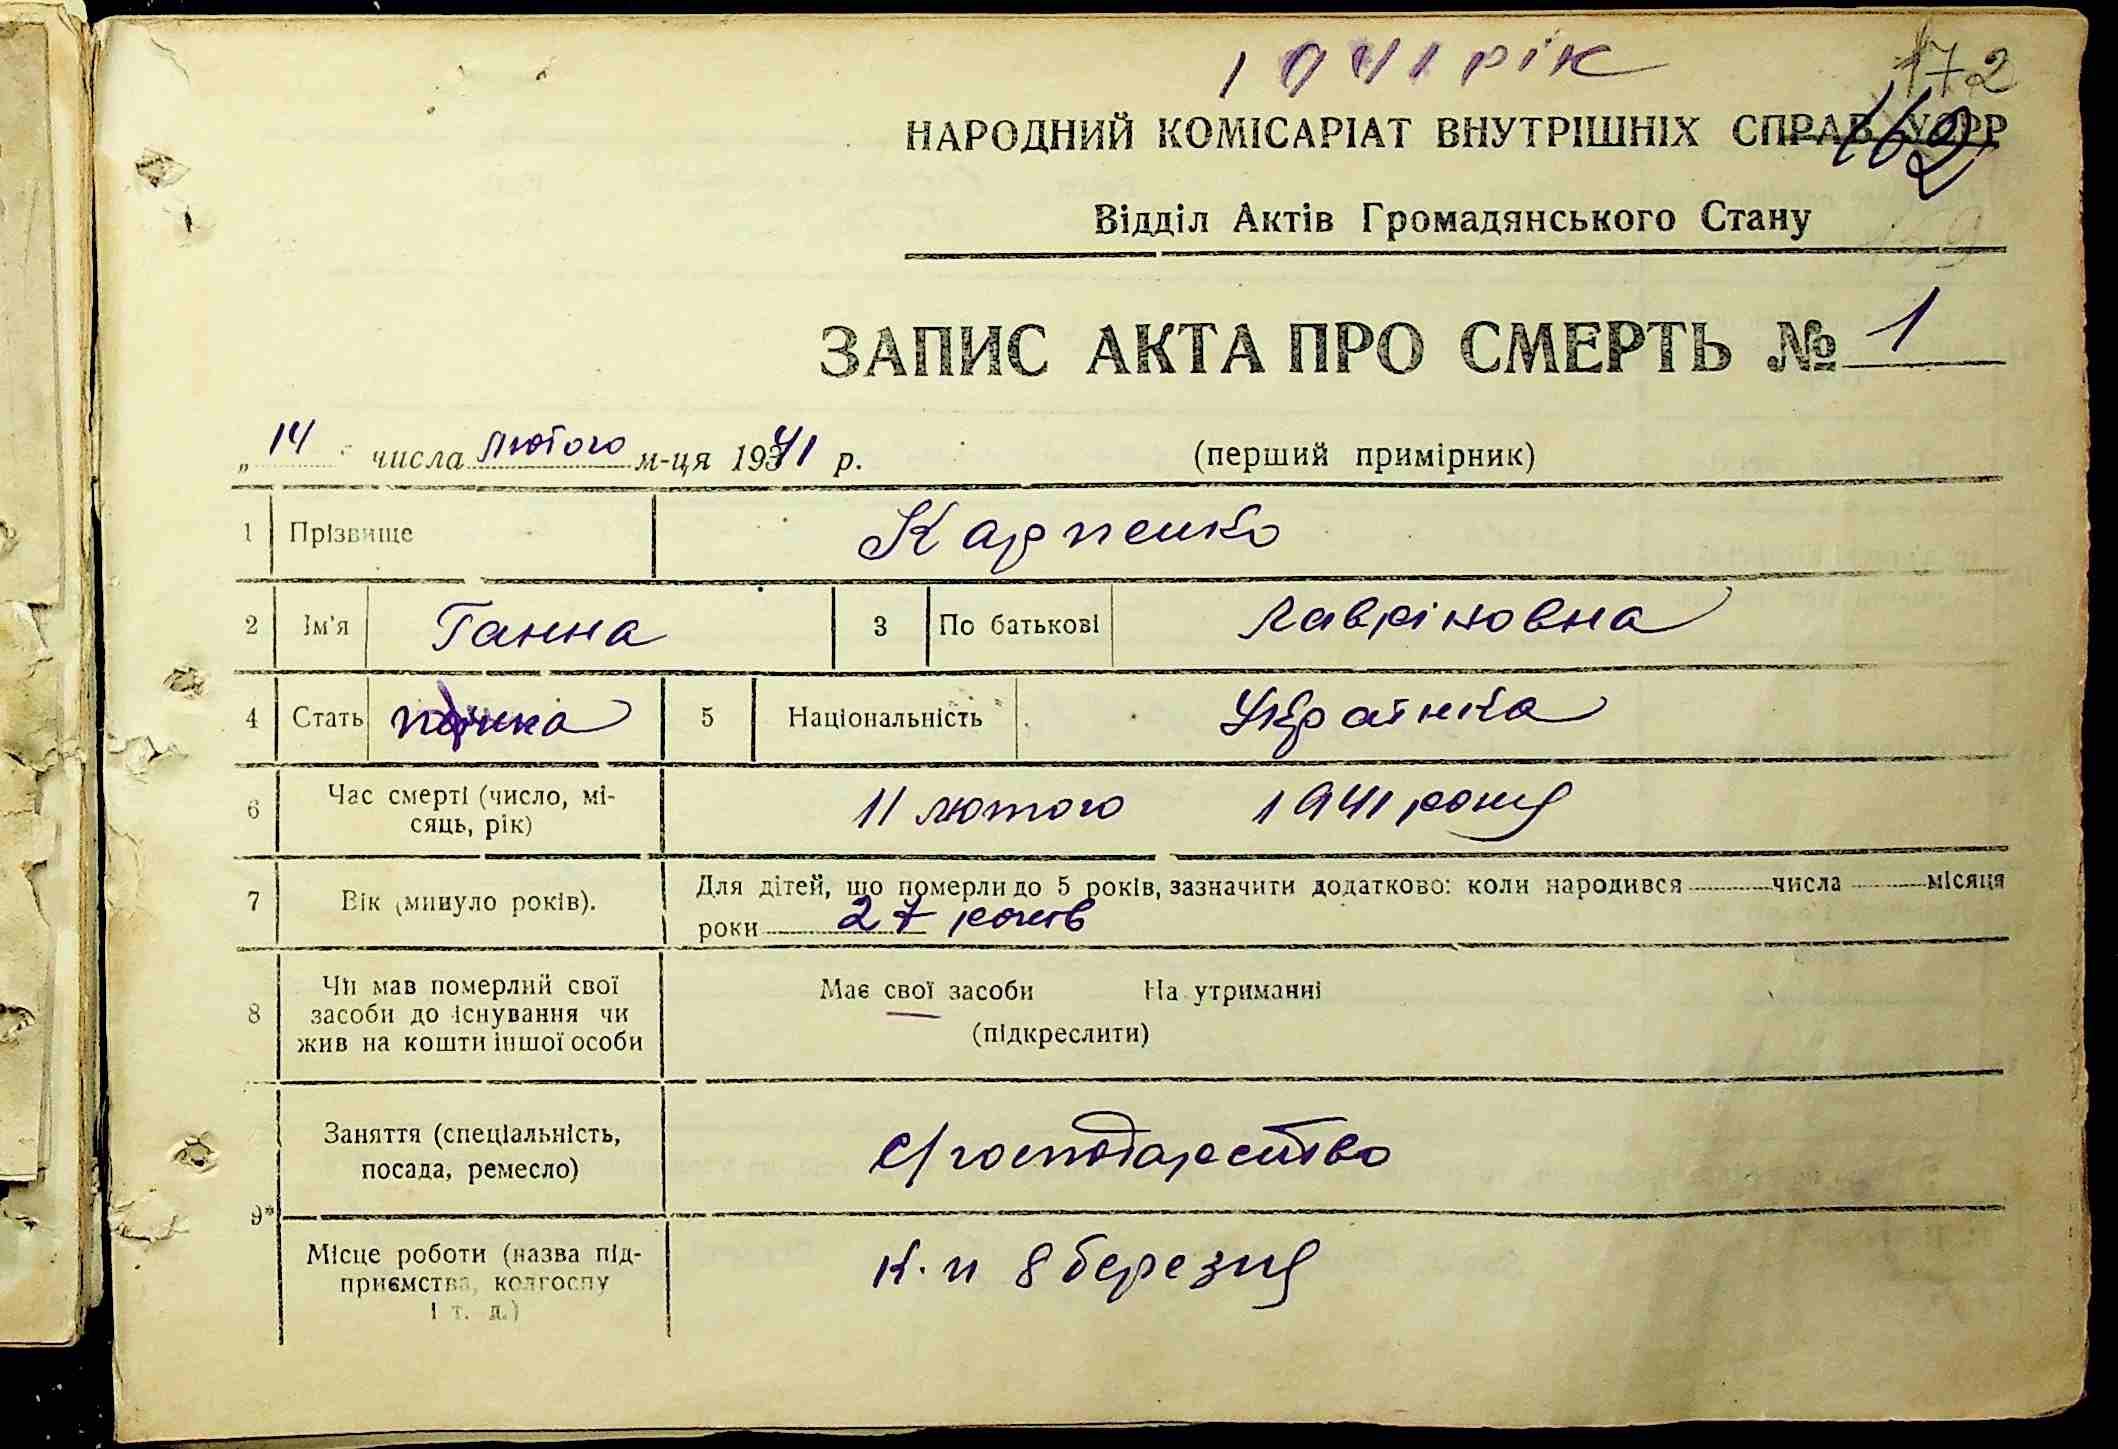 1941 рік
172
162
НАРОДНИЙ КОМІСАРІАТ ВНУТРІШНІХ СПРАВ УСРР
Відділ Актів Громадянського Стану
159
ЗАПИС АКТА ПРО СМЕРТЬ № 1
„ 14 " числа лютого м-ця 1941 р. (перший примірник)
1 Прізвище Карпенко
2 Ім'я Ганна 3 По батькові Лавріновна
4 Стать 5 Національність Українка
6 Час смерті (число, мі-
сяць, рік) 11 лютого 1941 року
7 Вік (минуло років). Для дітей, що померли до 5 років, зазначити додатково: коли народився числа місяця
роки 27 років
8 Чи мав померлий свої
засоби до існування чи
жив на кошти іншої особи
Має свої засоби На утриманні
(підкреслити)
9*
Заняття (спеціальність,
посада, ремесло) с/господарство
Місце роботи (назва під-
приємства, колгоспу
і т. д.) к. и 8 березня